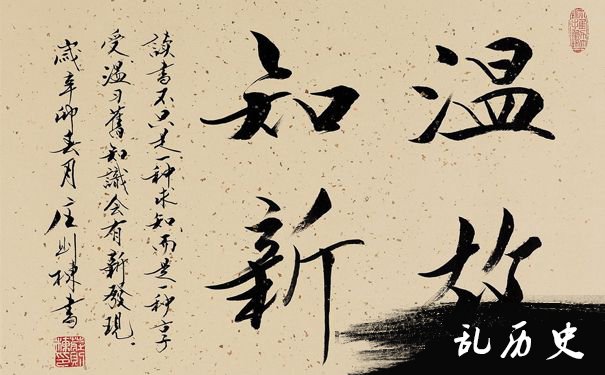 温故
知新
讀書不只是一种求知而是一种享
受温习舊知識会有新發現.
歲辛卯春月庄则棟書
莊則棟印
乱历史